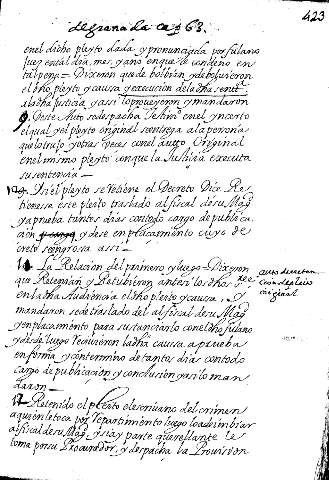 de granada ca. 63.
423
en el dicho pleyto dada, y pronunciada por fulano
juez en tal dia, mes, y año en que le condeno en
tal pena = Dixeron que debolvian, y debolvieron
el dho pleyto y causa y execucion de la dha sent.
a la dha Justicia, y assi lo proveyeron y mandaron
9. Deste Auto se despacha testim.o en el ynserto
el qual y el pleyto original se entrega a la persona
que lo trujo y otras veces con el autto original
en el mismo pleyto con que la Justicia executa
su sentencia —
10. Si el pleyto se retiene el Decreto Dice Re-
tienesse este pleyto traslado al fiscal de su Mag.d
y a prueba tantos dias con todo cargo de publica-
cion y dese emplaçamiento cuyo de
creto se empresa assi —
11. La Relacion del primero y luego = Dixeron
que Retenian y Retubieron ante si los dhos
en la dha Audiencia el dho pleyto y causa, y
mandaron se dé traslado del al fiscal de su Mag.d
y emplaçamiento para substanciarlo con el dho fulano
y desde luego Recivieron la dha causa a prueba
en forma, y con termino de tantos dias con todo
cargo de publicacion y conclusion y assi lo man
daron —
auto de reten
cion de pleito
original
12. Retenido el pleyto el escrivano del crimen
a quien le toca por repartimiento luego lo
al fiscal de su Mag.d y si ay parte querellante le
toma poder su Procurador, y despacha la Provission